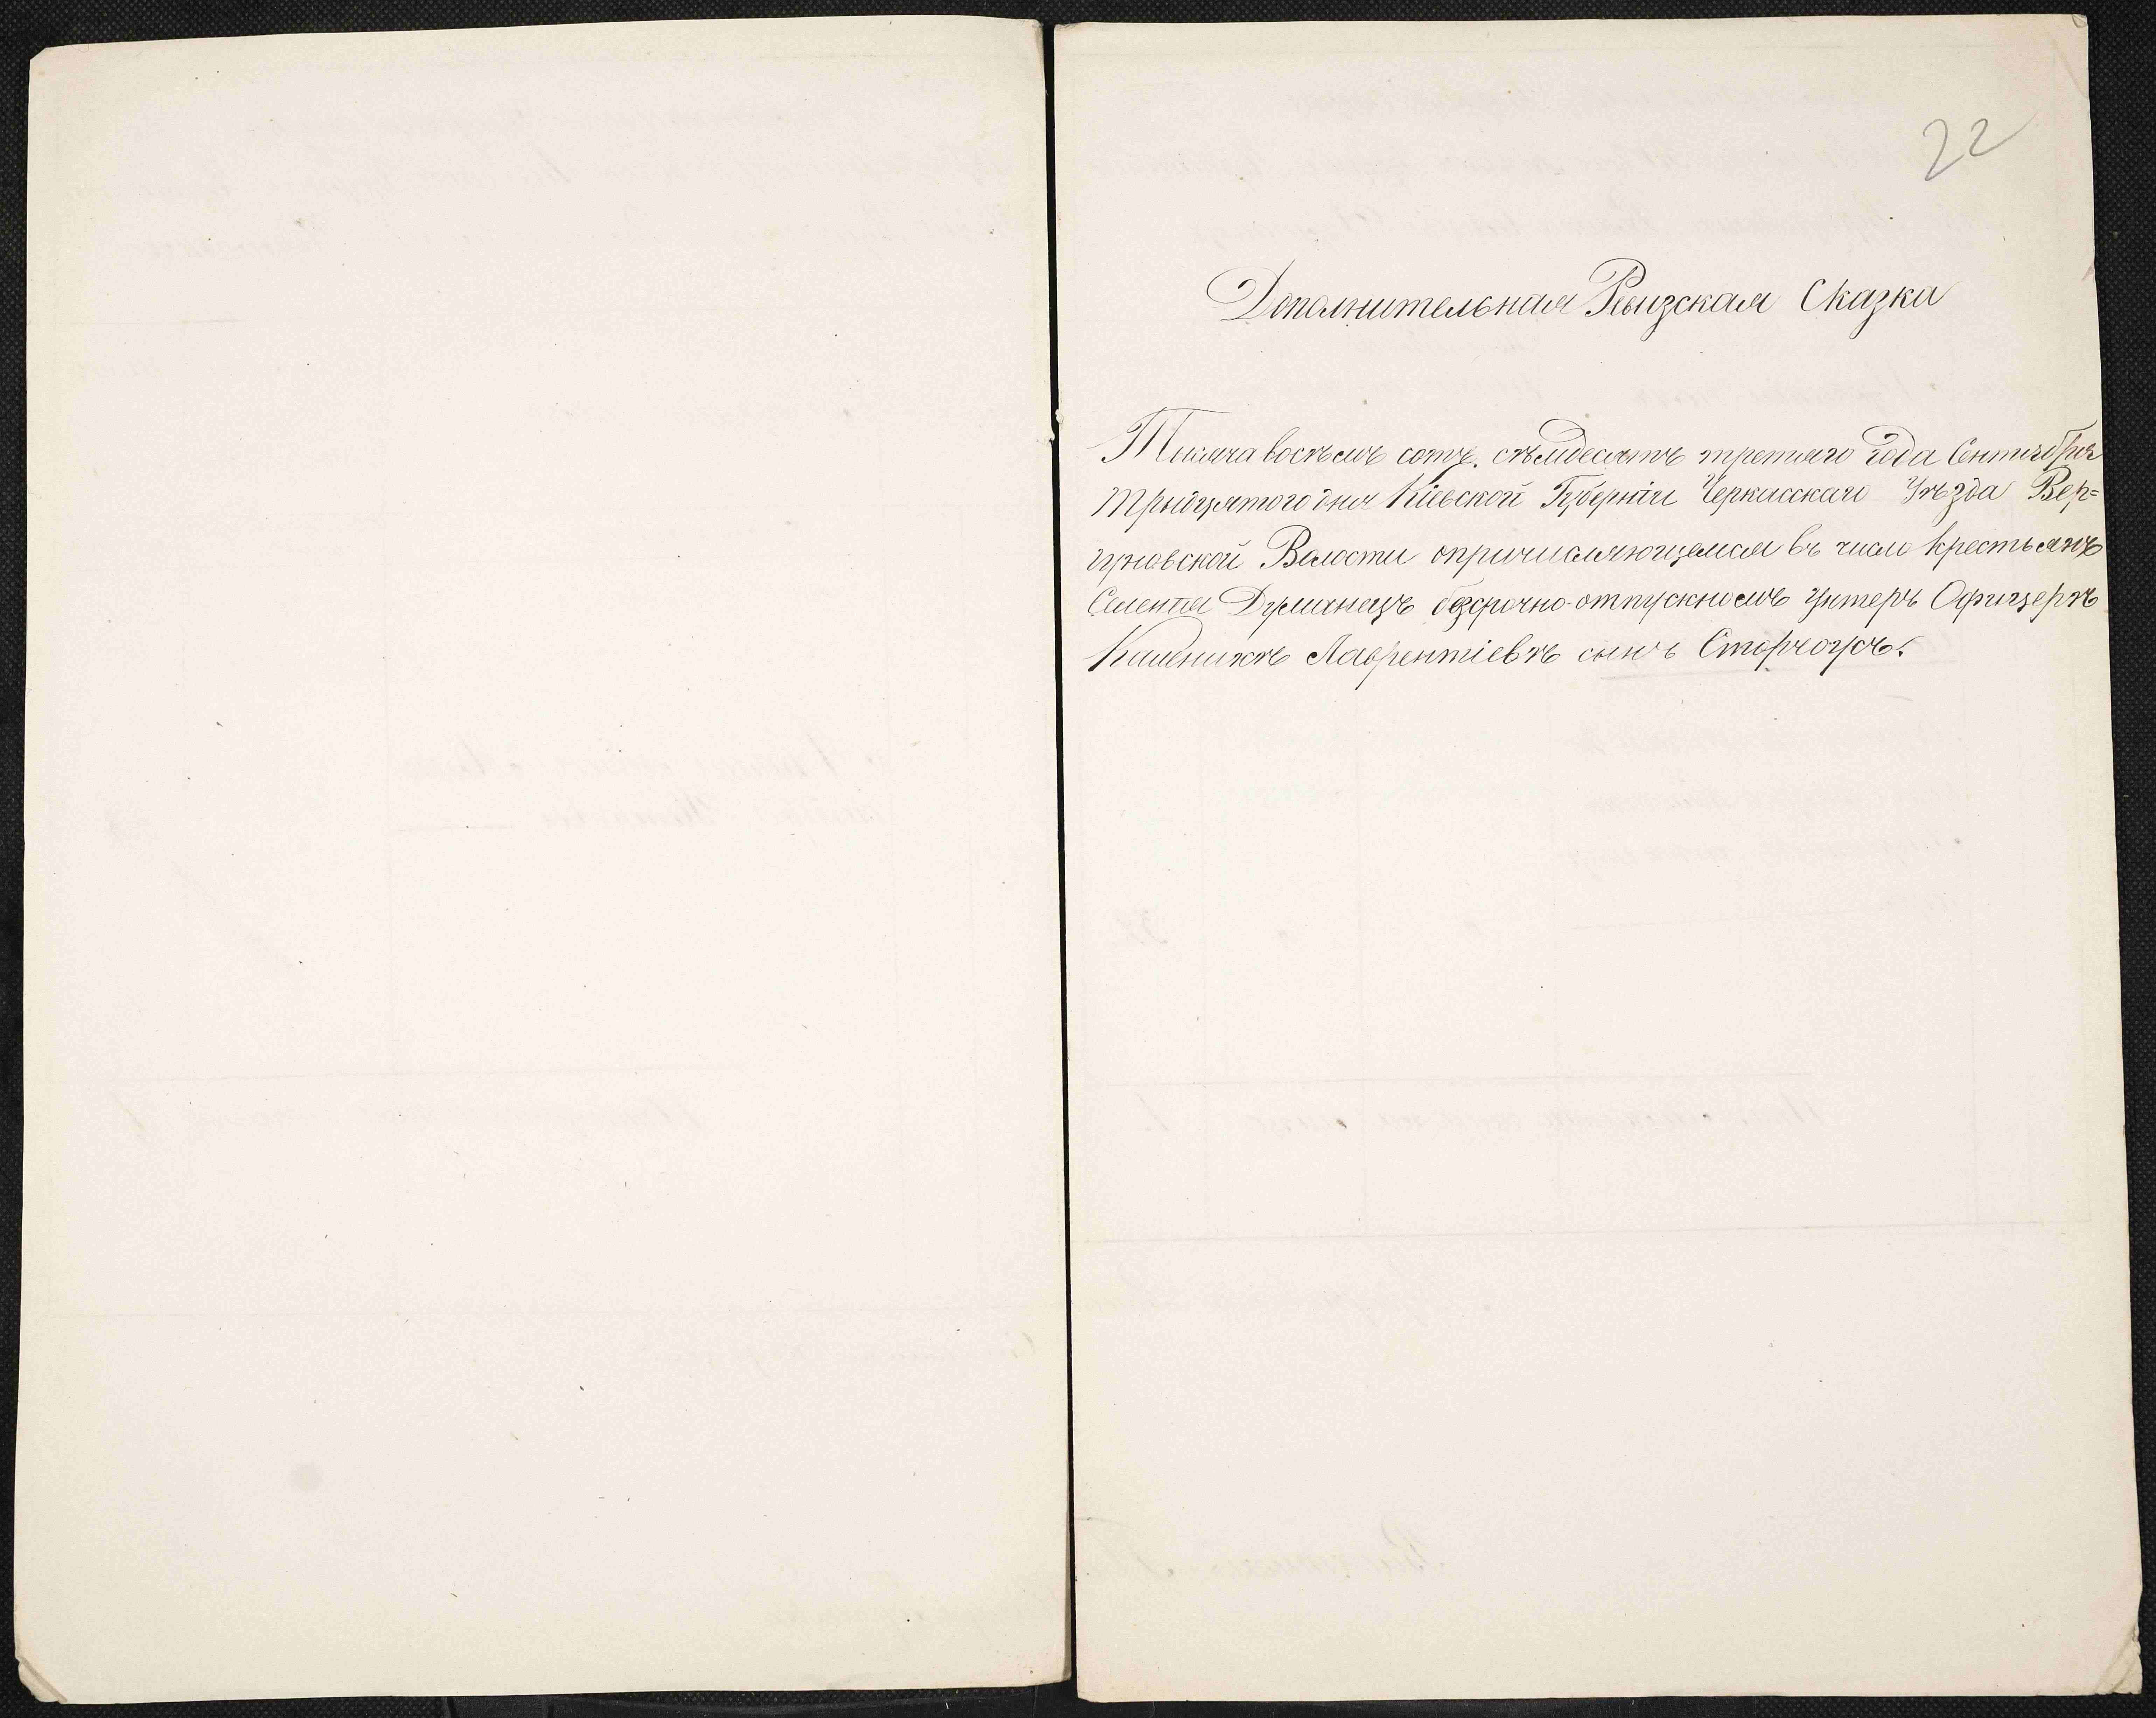 22
Дополнительная Ревизская Сказка
Тысяча восѣмъ сотъ. сѣмдесятъ третяго года Сентября
Трыйцятого дня Кіевской Губерніи Черкасскаго Уѣзда Вер=
гуновской Волости опричисляющемся въ число крестьянъ
Селенія Думанецъ безсрочно-отпускномъ унтеръ Офицерѣ
Каленикѣ Лаврентіевѣ сынъ Сторчоусъ.